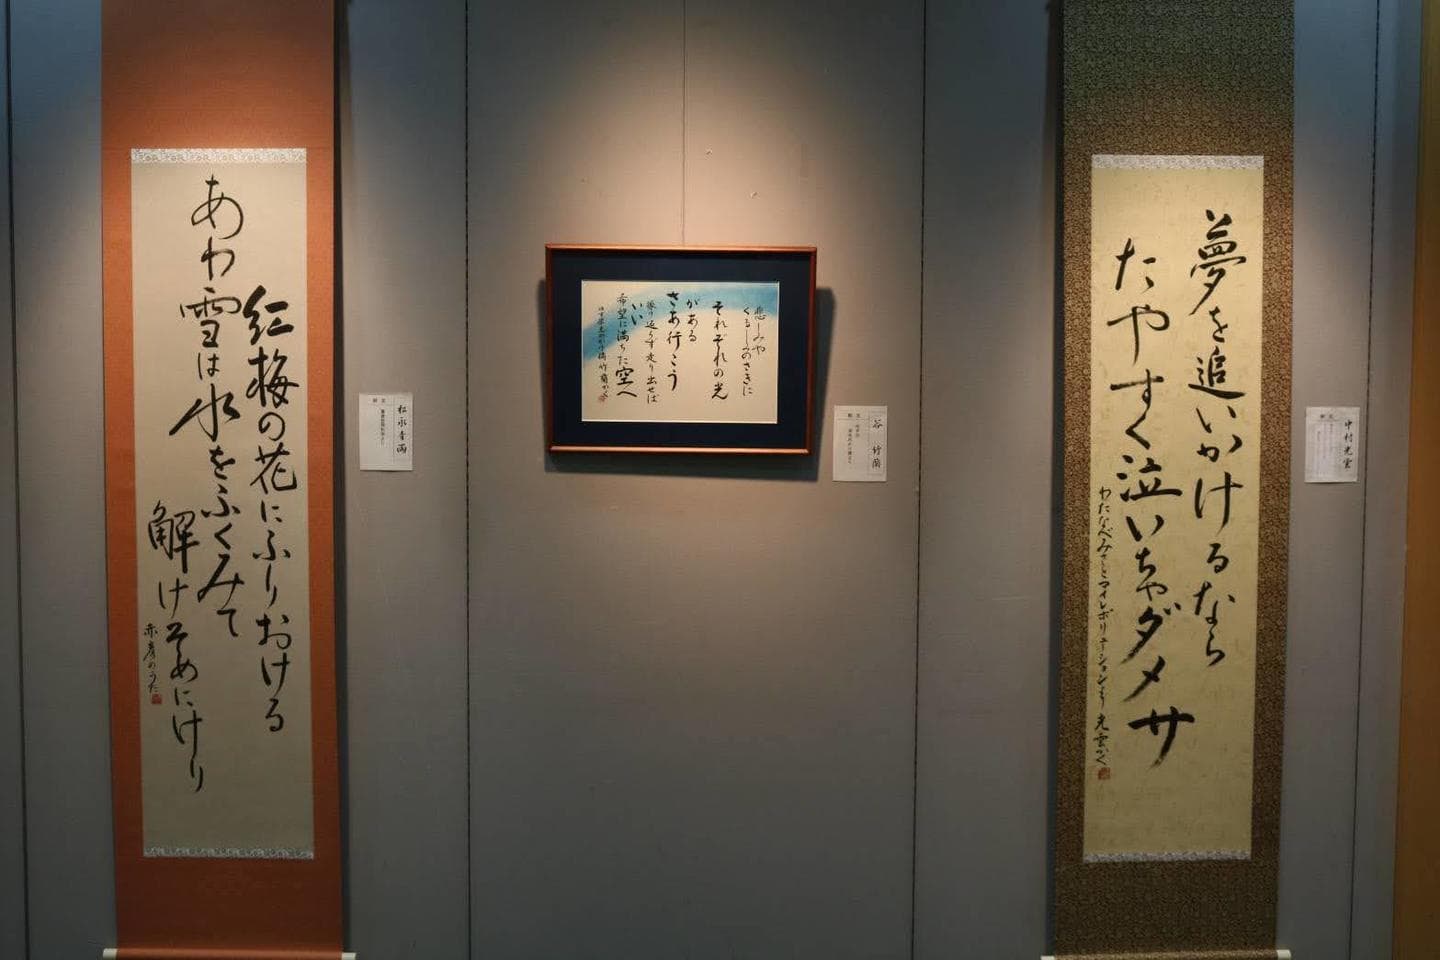 夢を追いかけるなら
たやすく泣いちゃダメサ
わたなべみさとマイレボリューションより 光雲かく
中村光雲
悲しみや
くるしみのさきに
それぞれの光
がある
さあ行こう
振り返らず走り出せば
いい
希望に満ちた空へ
竹蘭かく
谷 竹蘭
紅梅の花にふりおける
あわ雪は水をふくみて
解けそめにけり
赤彦のうた
松永青雨